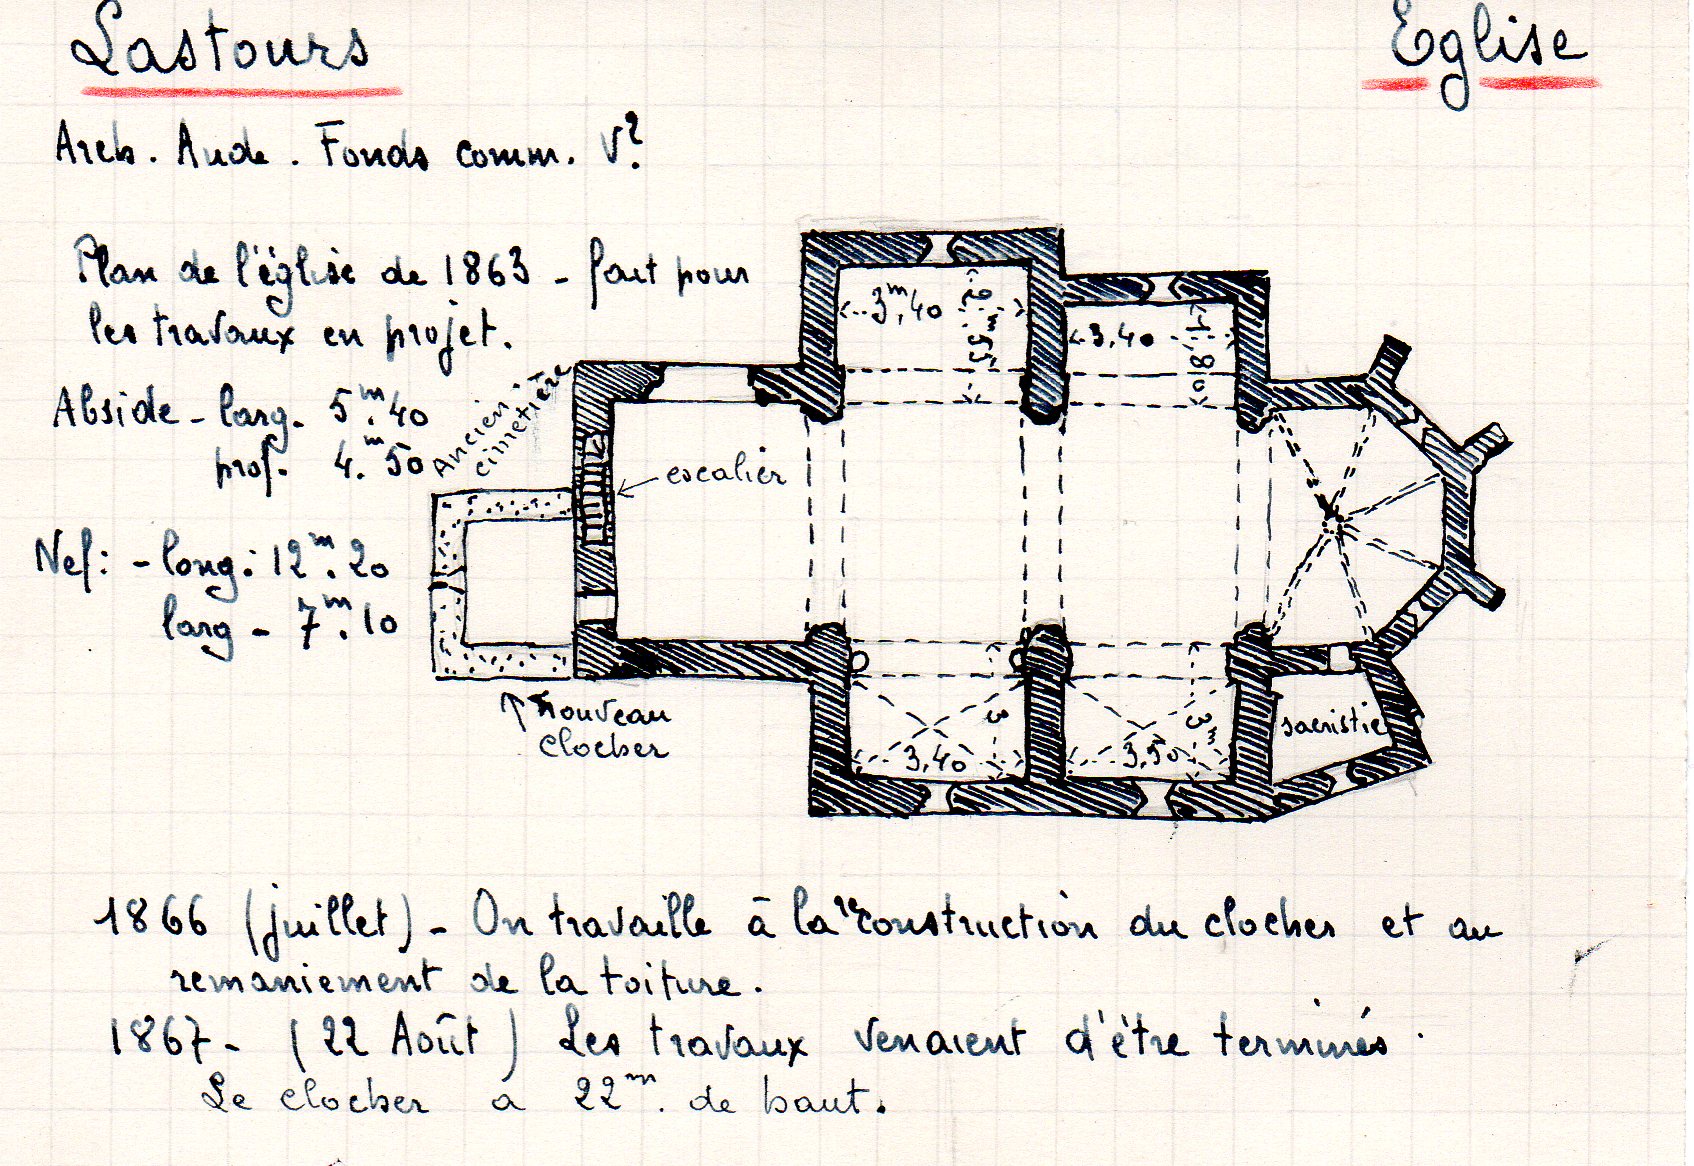 Lastours
Eglise
Arch. Aude. Fonds comm. V?
Plan de l'église de 1863 - fait pour
les travaux en projet.
Abside - larg. 5m.40
prof. 4.m50
Nef: - long: 12m.20
larg - 7m.10
Ancien
cimetière
escalier
nouveau
clocher
3m,40
3,40
1,80
3,40
3
3,50
3m
sacristie
1866 (juillet) - On travaille à la reconstruction du clocher et au
remaniement de la toiture.
1867 - (22 Août) Les travaux venaient d'être terminés.
Le clocher a 22m. de haut.